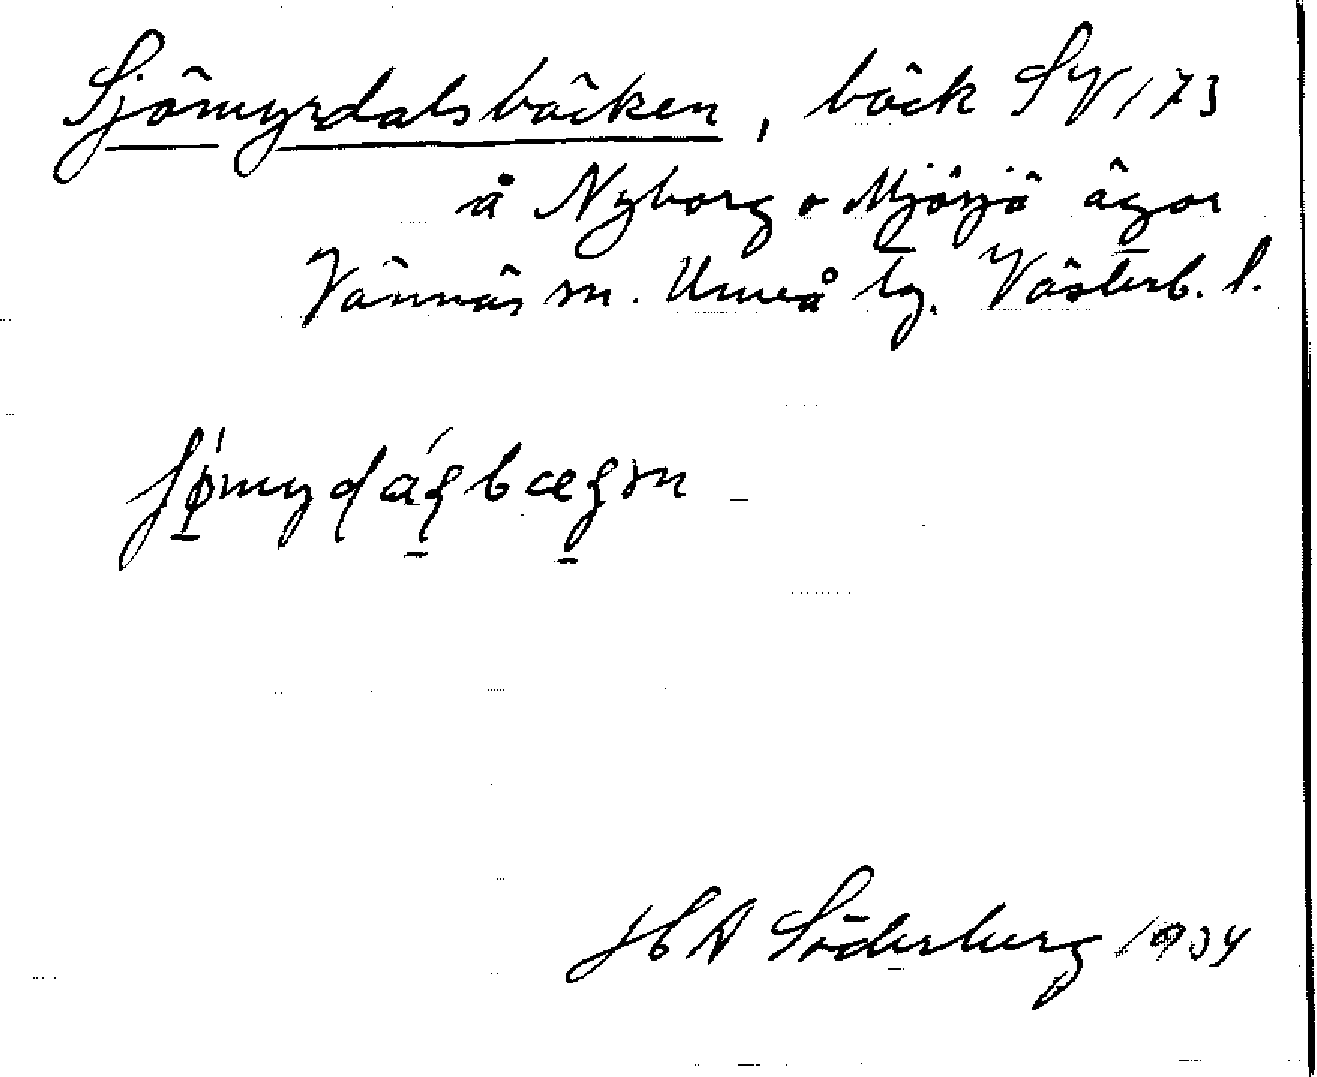 Sjömyrdalsbäcken, bäck SV 173
å Nyborg o Mjösjö ägor
Vännäs sn. Umeå tg. Västerb. l.
HA Söderberg 1934